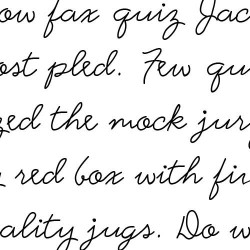 ow fax quiz Jac
ost pled. Few qu
zed the mock jur
red box with fir
ality jugs. Do w